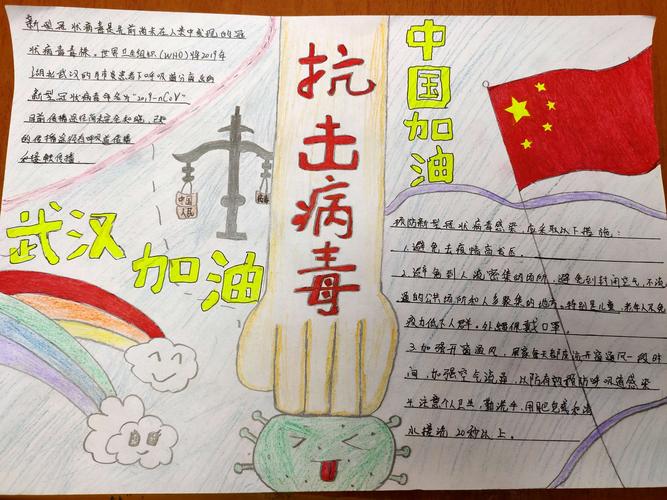 新型冠状病毒是先前尚未在人类中发现的冠
状病毒毒株。世界卫生组织(WHO)将2019年
湖北武汉的肺炎患者下呼吸道分离出的
新型冠状病毒命名为"2019-nCoV"
目前传播途径尚未完全知晓,已知
的传播途径有呼吸道传播
和接触传播
中国
人民
病毒
武汉
加油
抗击病毒
中国加油
预防新型冠状病毒感染,应采取以下措施:
1.避免去疫情高发区。
2.避免到人流密集的场所,避免到封闭空气不流
通的公共场所和人多聚集的地方。特别是儿童,老年人,免
疫力低下人群。外出佩戴口罩。
3.加强开窗通风,居家每天都应该开窗通风一段时
间,加强空气流通,以防有效预防呼吸道感染
4.注意个人卫生,勤洗手,用肥皂或和流
水搓洗20秒以上。